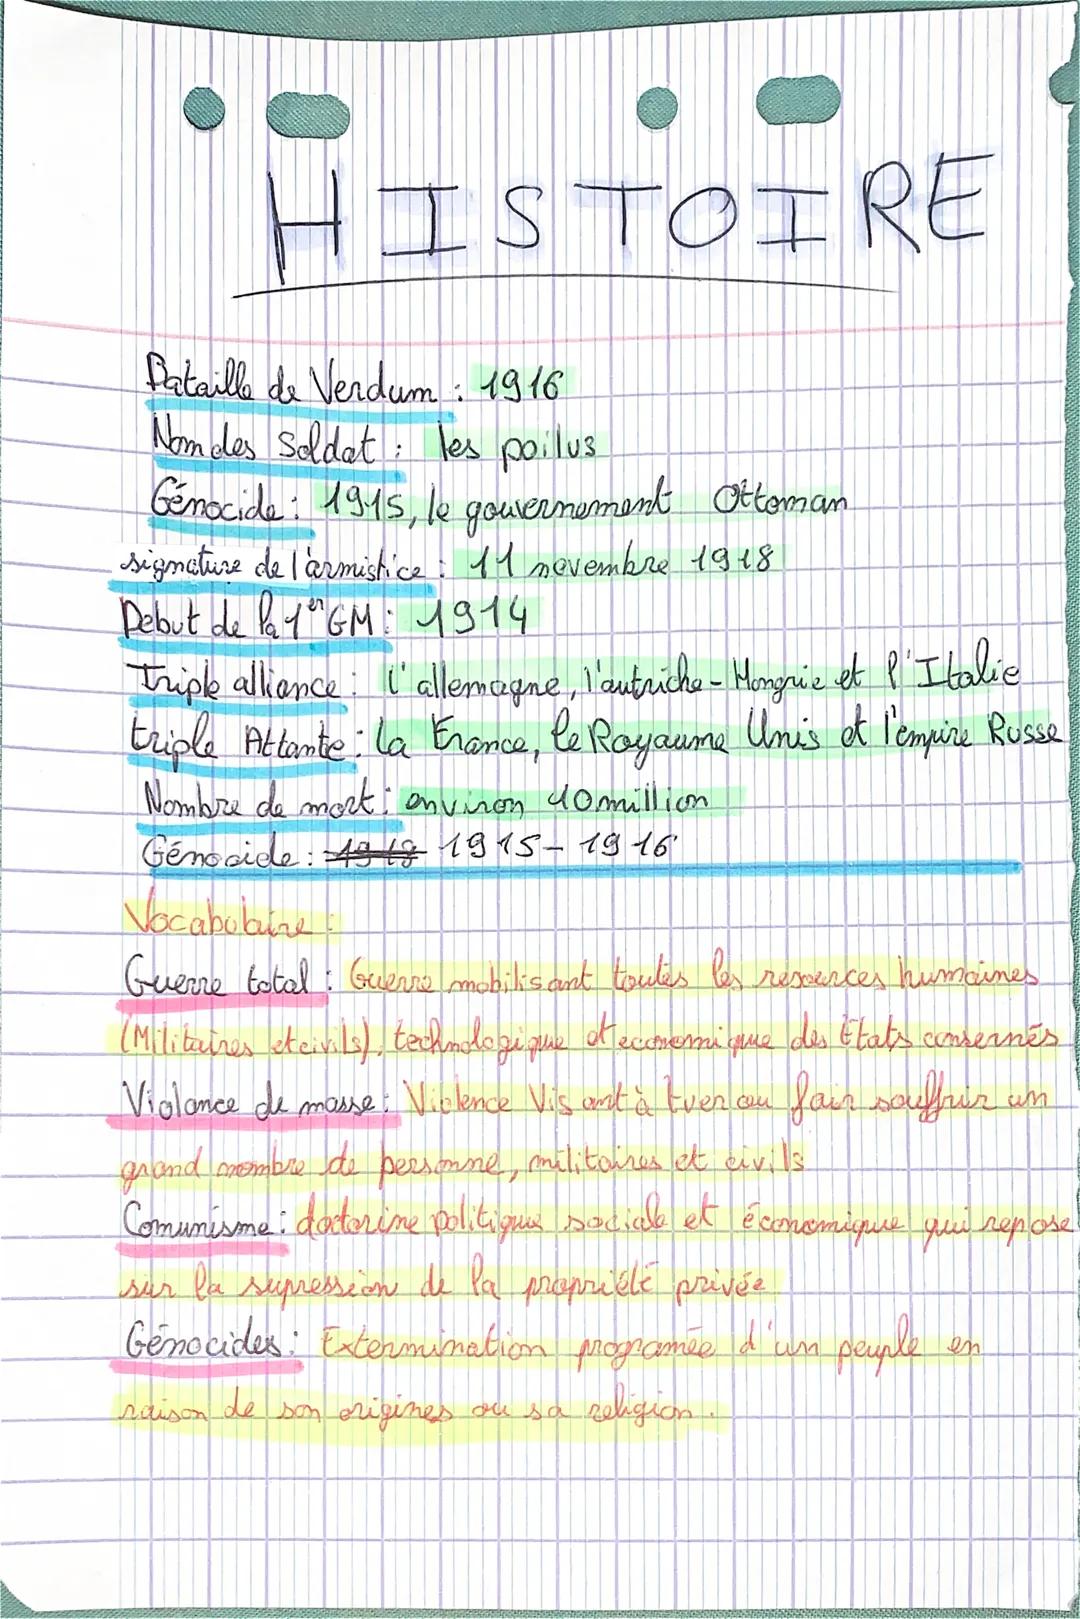 HISTOIRE
Bataille de Verdum : 1916
Nom des Soldat : les poilus
Génocide : 1915, le gouvernement Ottoman
signature de l'armistice : 11 novembre 1918
Debut de la 1er GM : 1914
Triple alliance : l'allemagne, l'autriche-Hongrie et l'Italie
triple Attante : la France, le Royaume Unis et l'empire Russe
Nombre de mort : environ 10 million
Génocide : 1918 1915-1916
Vocabulaire :
Guerre total : Guerre mobilisant toutes les resources humaines
(Militaires et civils), technologique et economique des Etats consernés
Violance de masse : Violence Visant à tuer ou fair souffrir un
grand nombre de personne, militaires et civils
Comunisme : doctorine politique sociale et économique qui repose
sur la supression de la propriété privée
Génocides : Extermination programée d'un peuple en
raison de son origines ou sa religion.